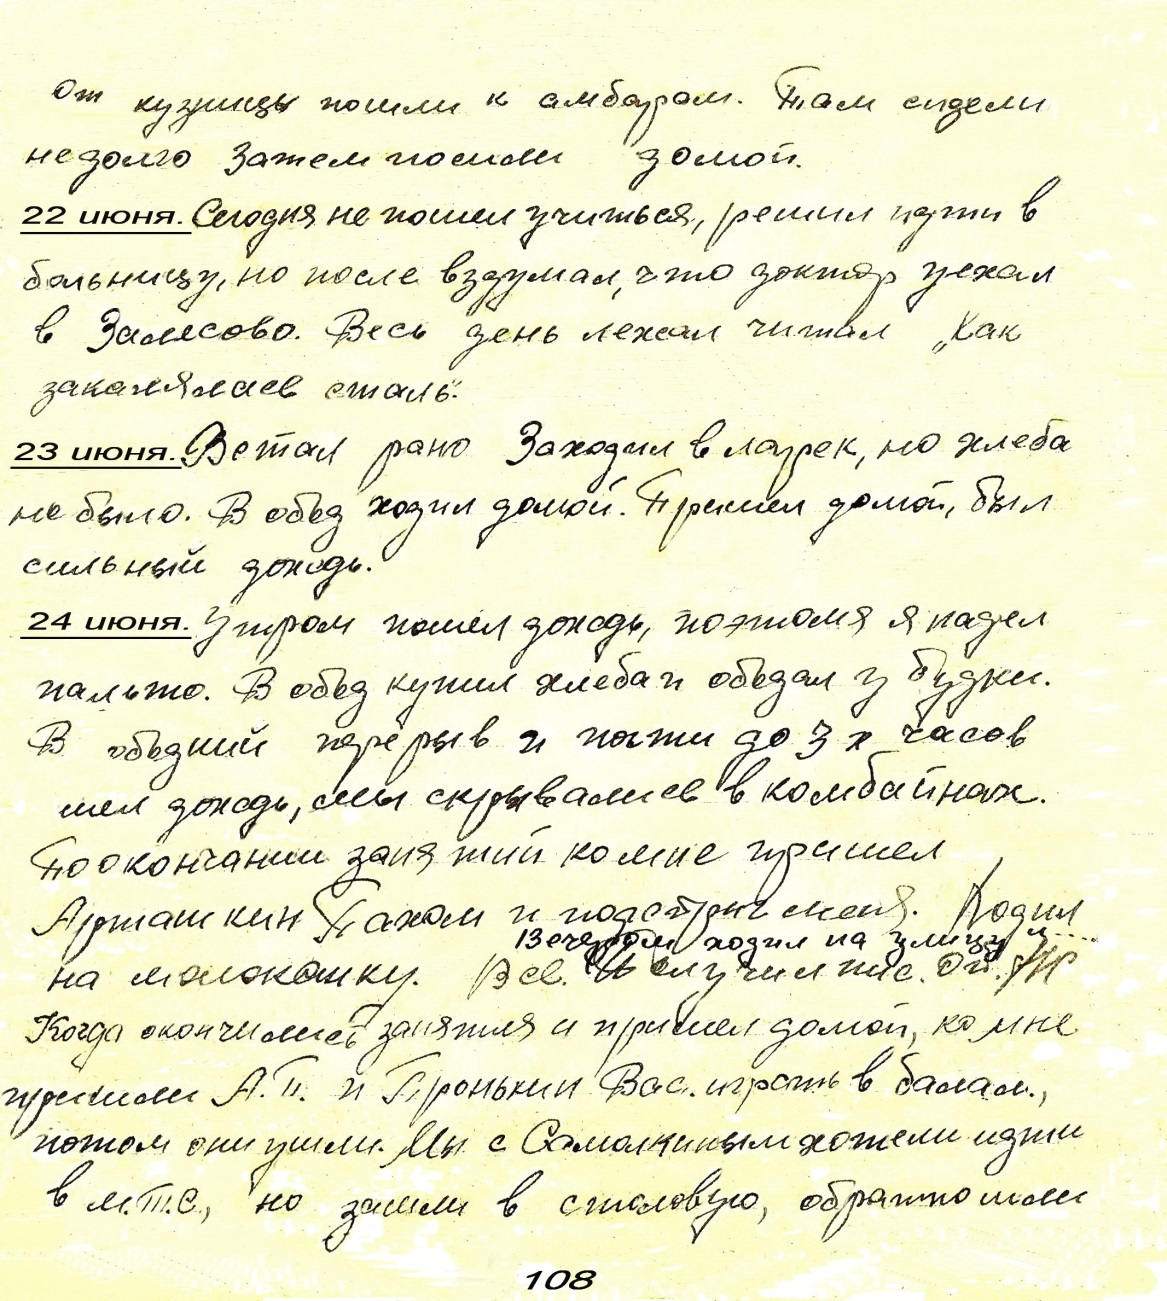 От кузницы пошли к амбарам. Там сидели
недолго Затем пошли домой.
22 июня. Сегодня не пошел учиться, решил идти в
больницу, но после вздумал, что доктор уехал
в Залесово. Весь день лежал читал „Как
закалялась сталь".
23 июня. Встал рано Заходил в ларек, но хлеба
не было. В обед ходил домой. Пришел домой, был
сильный дождь.
24 июня. Утром пошел дождь, поэтомя я надел
пальто. В обед купил хлеба и обедал у будки.
В обедний перерыв и почти до 3х часов
шел дождь, мы скрывались в комбайнах.
По окончании занятий ко мне пришел
Арташкин Пахом и подстриг меня. Ходил
Вечером ходил на улицу и
на молоканку. Все. Получил пис. от
Когда окончились занятия и пришел домой, ко мне
пришли А.П. и Пронькин Вас. играть в балал.,
потом они ушли. Мы с Самолкиным хотели идти
в м.т.с., но зашли в столовую, обратно шли
108